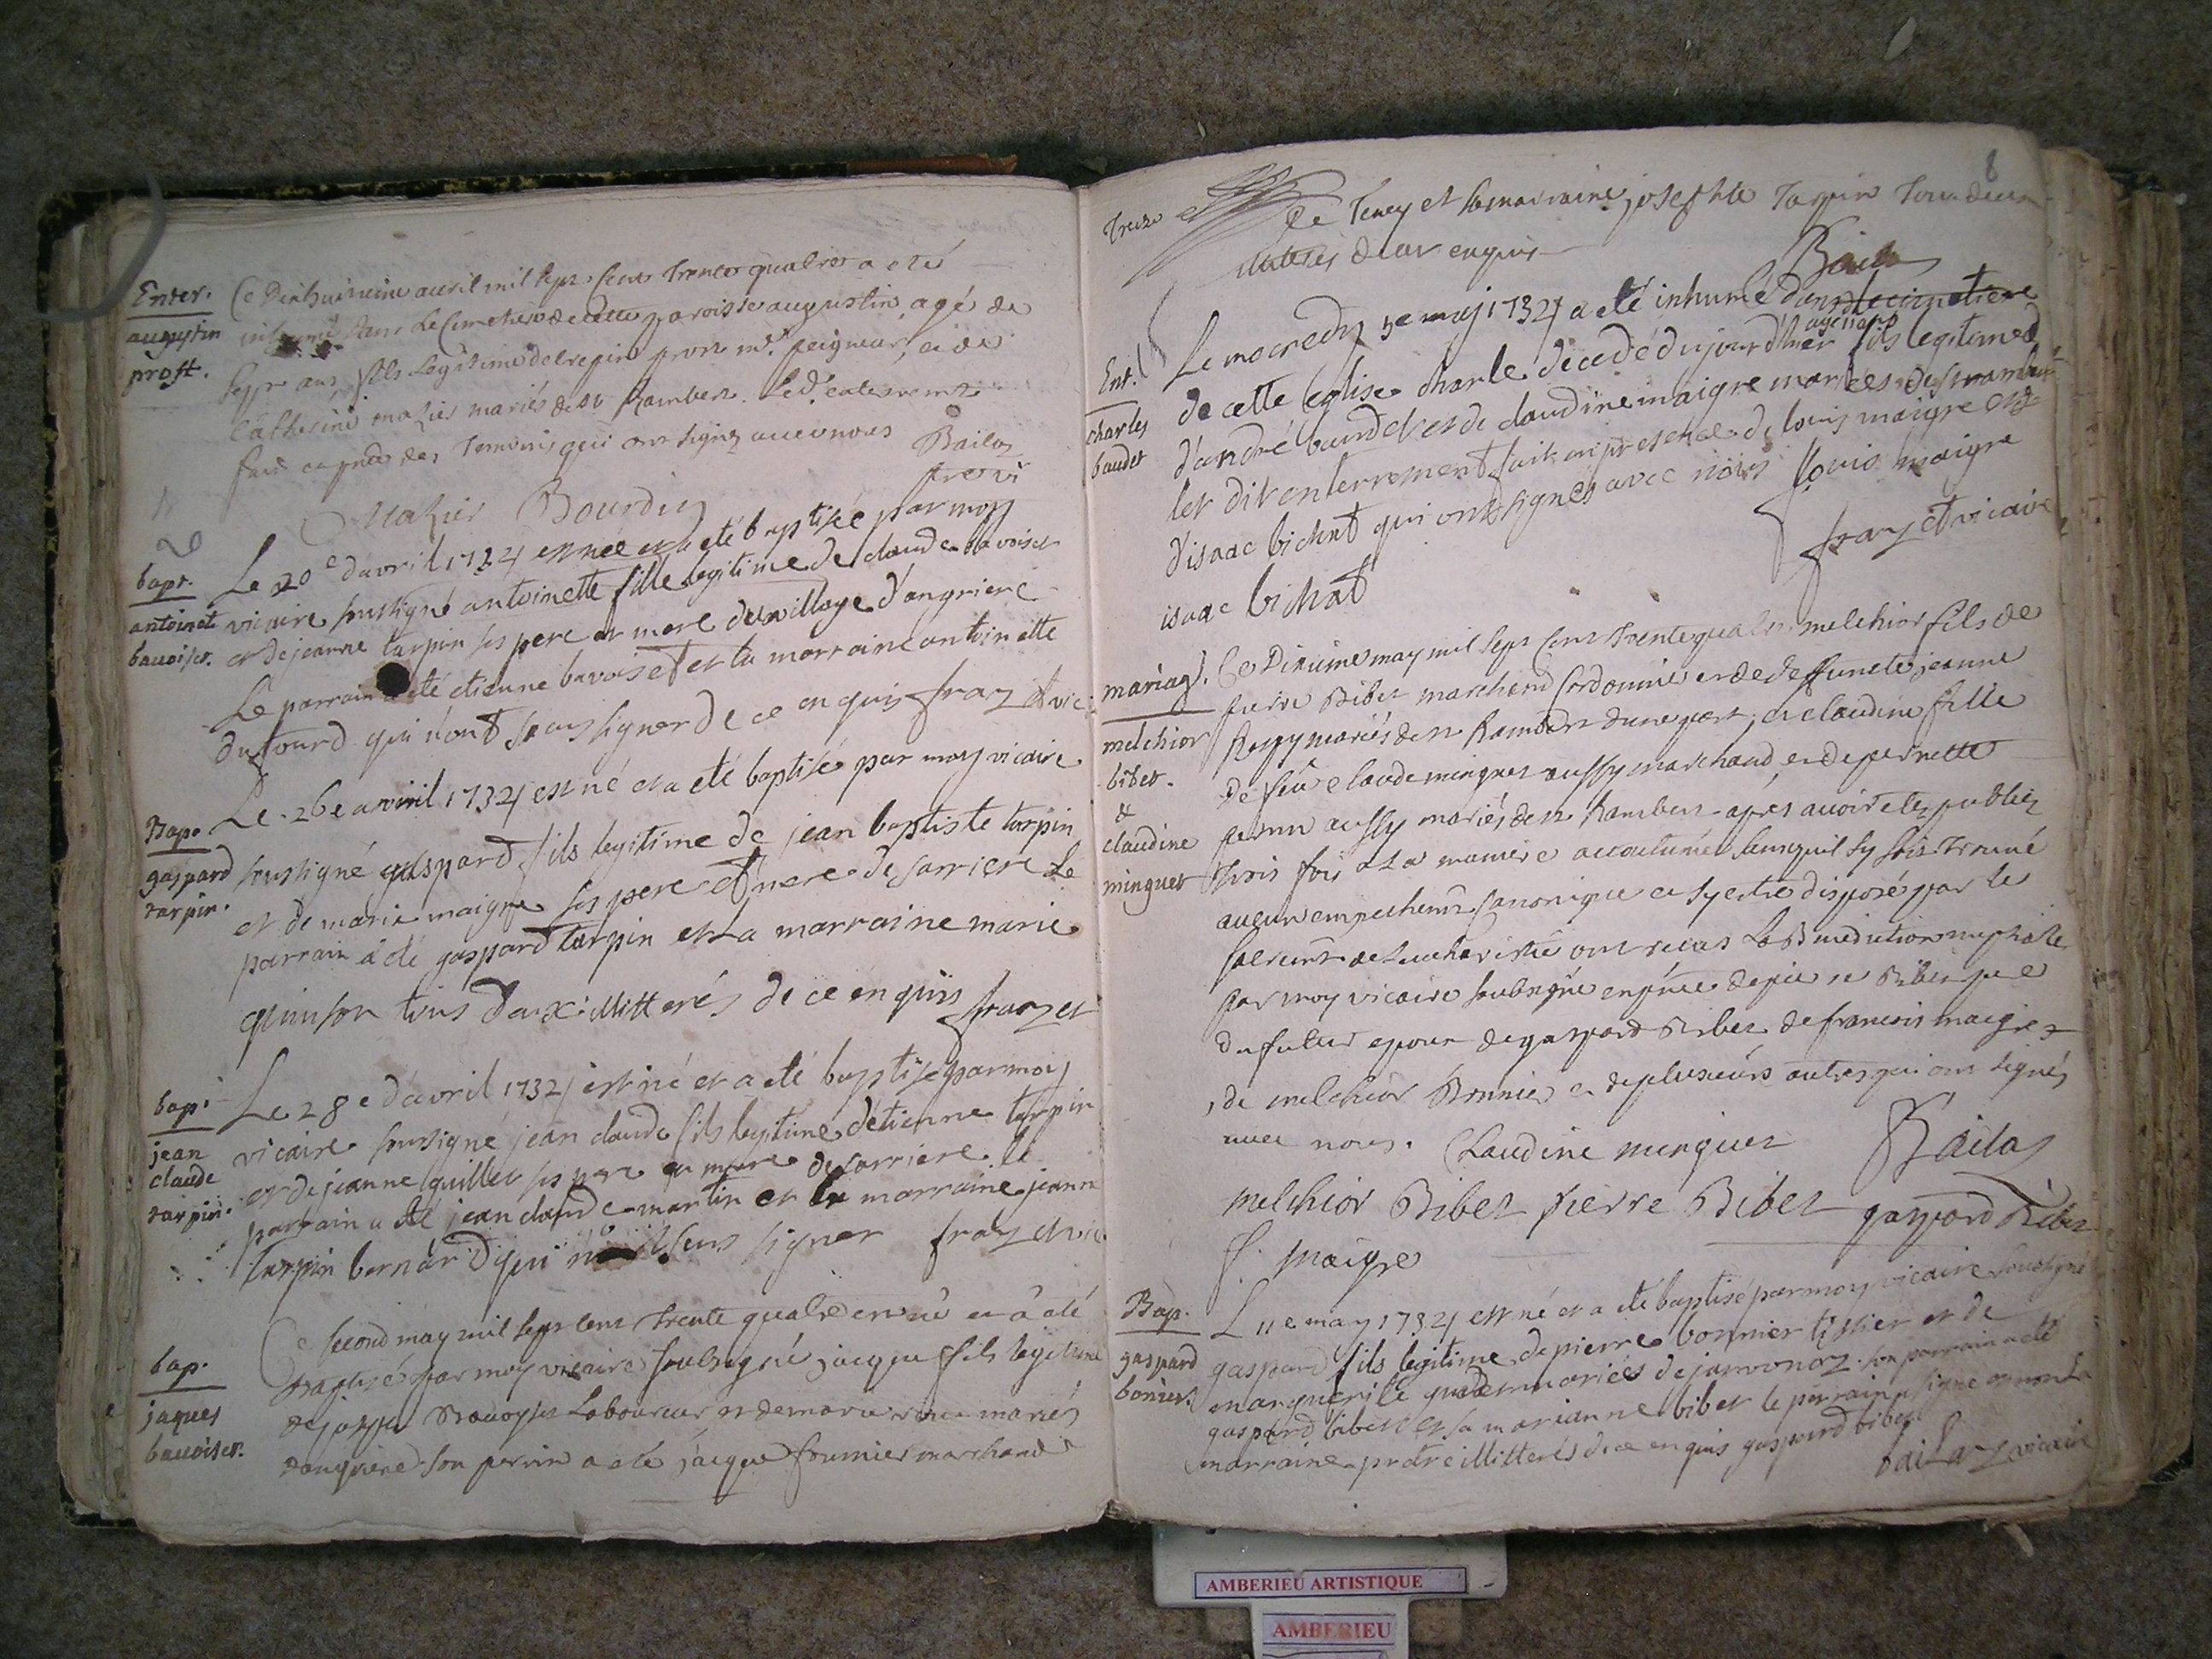 Enter.
augustin
proft.
Ce Dixhuitieme avril mil sept cent trente quatre a eté
inhumé dans le cimetiere de cette paroisse augustin agé de
sept ans, fils legitime de mr. peigneur, et de
Catherine mazier mariés de st Rambert. Led. enterrement
fait en pnce des temoins qui ont signez avec nous Bailas
Mazier Bourdin
bapt.
antoinet
bavoiset.
Le 20e davril 1734 est née et a eté baptisée par moy
vicaire soussigné antoinette fille legitime de claude bavoiset
et de jeanne tarpin ses pere et mere du village d'angriere
Le parrain a eté etienne bavoiset et la marraine antoinette
dufourd qui n'ont sceus signer de ce enquis fray et vic
Bap.
gaspard
tarpin.
Le 26e avril 1734 est né et a eté baptisé par moy vicaire
soussigné gaspard fils legitime de jean baptiste tarpin
et de marie maigre ses pere et mere de sarriere Le
parrain a eté gaspard tarpin et La marraine marie
quinson tous deux illitterés de ce enquis
bap.
jean
claude
tarpin.
Le 28e d'avril 1734 est né et a eté baptisé par moy
vicaire soussigné jean claude fils legitime d'etienne tarpin
et de jeanne guillet ses pere et mere de sarriere le
parrain a eté jean claude martin et la marraine jeanne
tarpin bernard qui sceus signer fray et vic
bap.
jaques
bavoiset.
Ce second may mil sept cent trente quatre est né et a eté
Baptisé par moy vicaire soubsigné jacque fils legitime
de jacque Bavoyset Laboureur et de marie mariés
dangriere son parrin a eté jacque fournier marchand
8
Treize
De Teney et sa marraine josephte Tarpin Tous deux
illiterés de ce enquis
Bailas
Ent.
charles
baudet
Le mecredy 5e may 1734 a eté inhumé dans le cimetiere
de cette eglise charle decedé du jour d'hier agé ans fils legitime
d'andré baudet et de claudine maigre mariés de st rambert
ler dit enterrement fait en presence de louis maigre et
d'isaac bichat qui ont signés avec nous louis maigre
isaac bichat fray et vicaire
mariag.
melchior
bibet.
&
claudine
minguet
Ce Dixieme may mil sept cent trente quatre melchior fils de
pierre Bibet marchand Cordonnier et de deffuncte jeanne
mariés de st Rambert dune part, et claudine fille
de feu claude minguet aussy marchand, et de pernette
aussy mariés de st Rambert apres avoir eté publiez
trois fois a La maniere accoutumée sans quil sy soit trouvé
aucun empechemt canonique et sy estre disposé par le
sacremt de Leucharistie ont receus La Benediction nuptiale
par moy vicaire soubsigné en pnce de pierre Bibet pere
du futur epoux de gaspard Bibet de francois maigre
de melchior Bonnier et de plusieurs autres qui ont signés
avec nous. Claudine minguet Bailas
melchior Bibet pierre Bibet gaspard Bibet
f. maigre
Bap.
gaspard
bonier.
L 11e may 1734 est né et a eté baptisé par moy vicaire soussigné
gaspard fils legitime de pierre bonnier tissier et de
marguerite mariés de son parrain a eté
gaspard bibet et sa marianne bibet le parrain a signé et non La
marraine illitterés de ce enquis gaspard bibet
bailas vicaire
AMBERIEU ARTISTIQUE
AMBERIEU